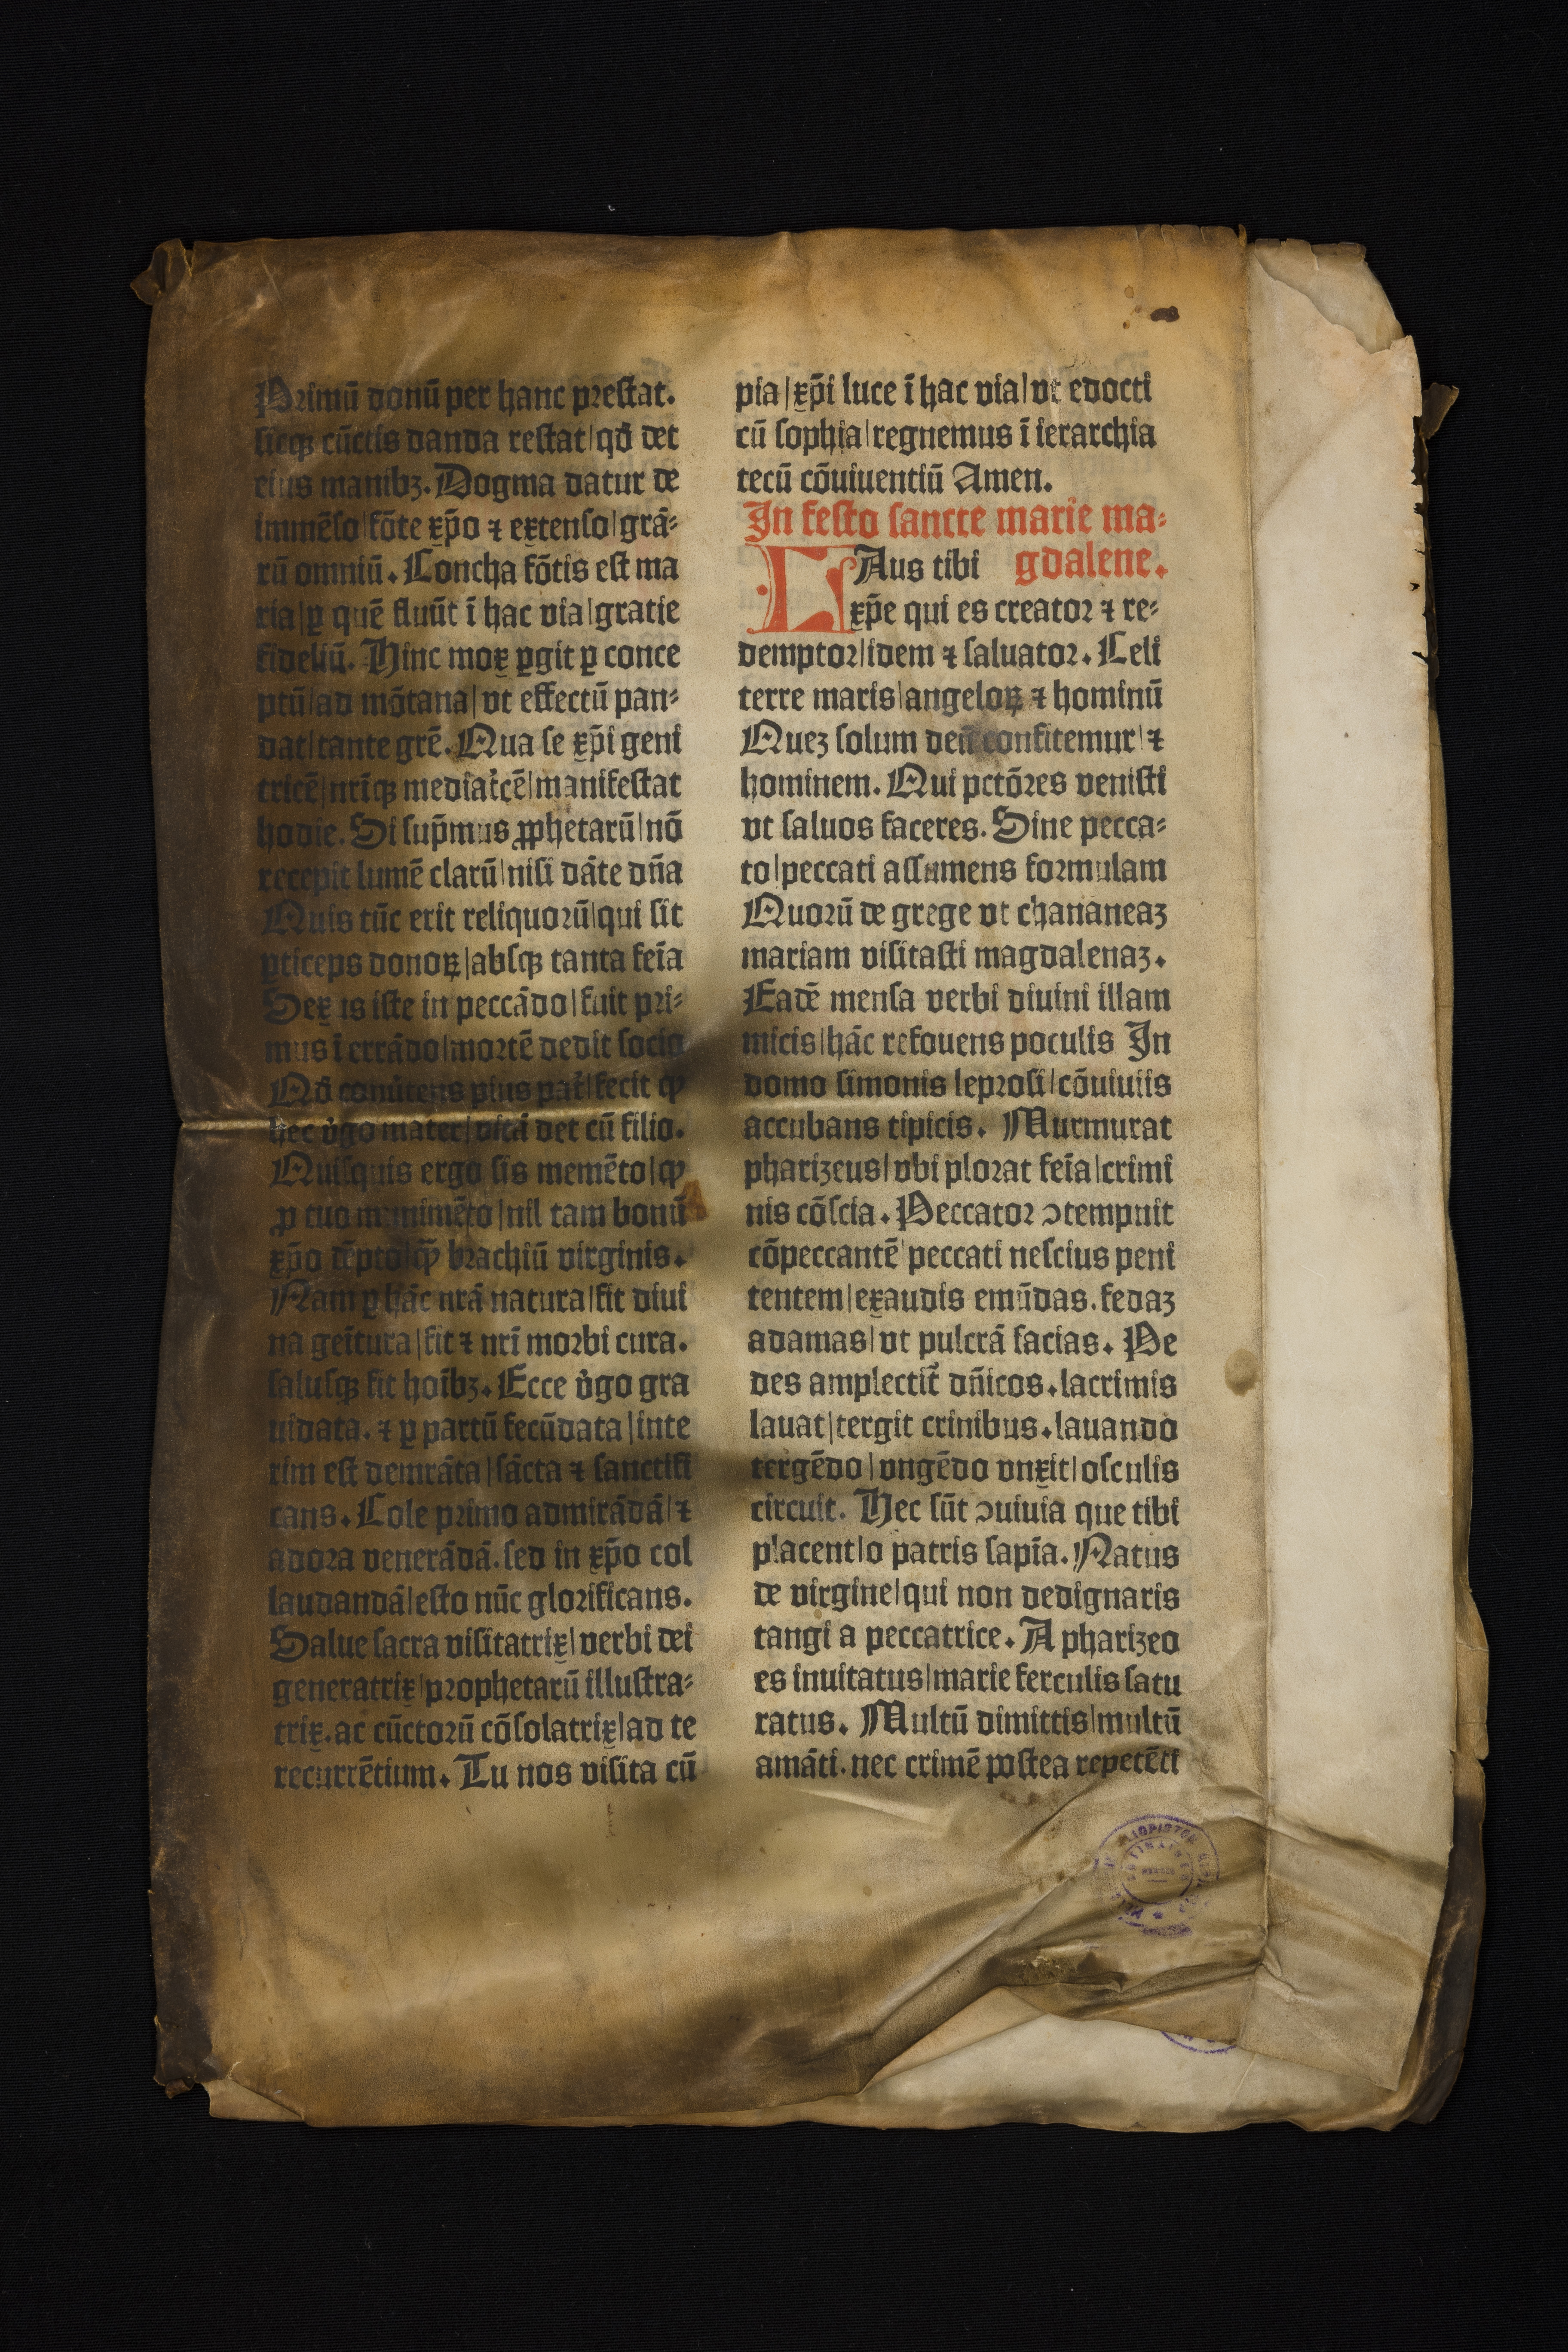 Primū donū per hanc prestat.
sicqꝫ cūctis danda restat|qđ det
eius manibꝫ. Dogma datur de
immēso|fōte xp̄o ⁊ extenso|grā⸗
rū omniū. Concha fōtis est ma
ria|ꝑ quē fluūt ī hac via|gratie
fideliū. Hinc mox ꝑgit ꝑ conce
ptū|ad mōtana|vt effectū pan⸗
dat|tante grē. Qua se xp̄i geni
tricē|nr̄iqꝫ mediat̄cē|manifestat
hodie. Si sup̄mus ꝓphetarū|nō
recepit lumē clarū|nisi dāte dn̄a
Quis tūc erit reliquorū|qui sit
ꝑticeps donoꝝ|absqꝫ tanta feīa
Sex is iste in peccādo|fuit pri⸗
mus ī errādo|mortē dedit socio
pius pat̄|fecit ꝙ
hec v̓go mater|vitā det cū filio.
Quisquis ergo sis memēto|ꝙ
ꝓ tuo mūnimēto|nil tam bonū
xp̄o dēpto|ꝙ̄ brachiū virginis.
Nam ꝑ hāc nrā natura|fit diui
na geītura|fit ⁊ nr̄i morbi cura.
salusqꝫ fit hoībꝫ. Ecce v̓go gra
uidata. ⁊ ꝑ partū fecūdata|inte
rim est demrāta|sācta ⁊ sanctifi
cans. Cole primo admirādā|⁊
adora venerādā. sed in xp̄o col
laudandā|esto nūc glorificans.
Salue sacra visitatrix|verbi dei
generatrix|prophetarū illustra⸗
trix. ac cūctorū cōsolatrix|ad te
recurrētium. Tu nos visita cū
pia|xp̄i luce ī hac via|vt edocti
cū sophia|regnemus ī ierarchia
tecū cōuiuentiū Amen.
In festo sancte marie ma⸗
LAus tibi gdalene.
xp̄e qui es creator ⁊ re⸗
demptor|idem ⁊ saluator. Celi
terre maris|angeloꝝ ⁊ hominū
Queꝫ solum deū confitemur|⁊
hominem. Qui pctōres venisti
vt saluos faceres. Sine pecca⸗
to|peccati assumens formulam
Quorū de grege vt chananeaꝫ
mariam visitasti magdalenaꝫ.
Eadē mensa verbi diuini illam
micis|hāc refouens poculis In
domo simonis leprosi|cōuiuiis
accubans tipicis. Murmurat
phariꝫeus|vbi plorat feīa|crimi
nis cōscia. Peccator ↄtempnit
cōpeccantē|peccati nescius peni
tentem|exaudis emūdas. fedaꝫ
adamas|vt pulcrā facias. Pe
des amplectit̄ dn̄icos. lacrimis
lauat|tergit crinibus. lauando
tergēdo|vngēdo vnxit|osculis
circuit. Hec sūt ↄuiuia que tibi
placent|o patris sapīa. Natus
de virgine|qui non dedignaris
tangi a peccatrice. A phariꝫeo
es inuitatus|marie ferculis satu
ratus. Multū dimittis|multū
amāti. nec crimē postea repetēti